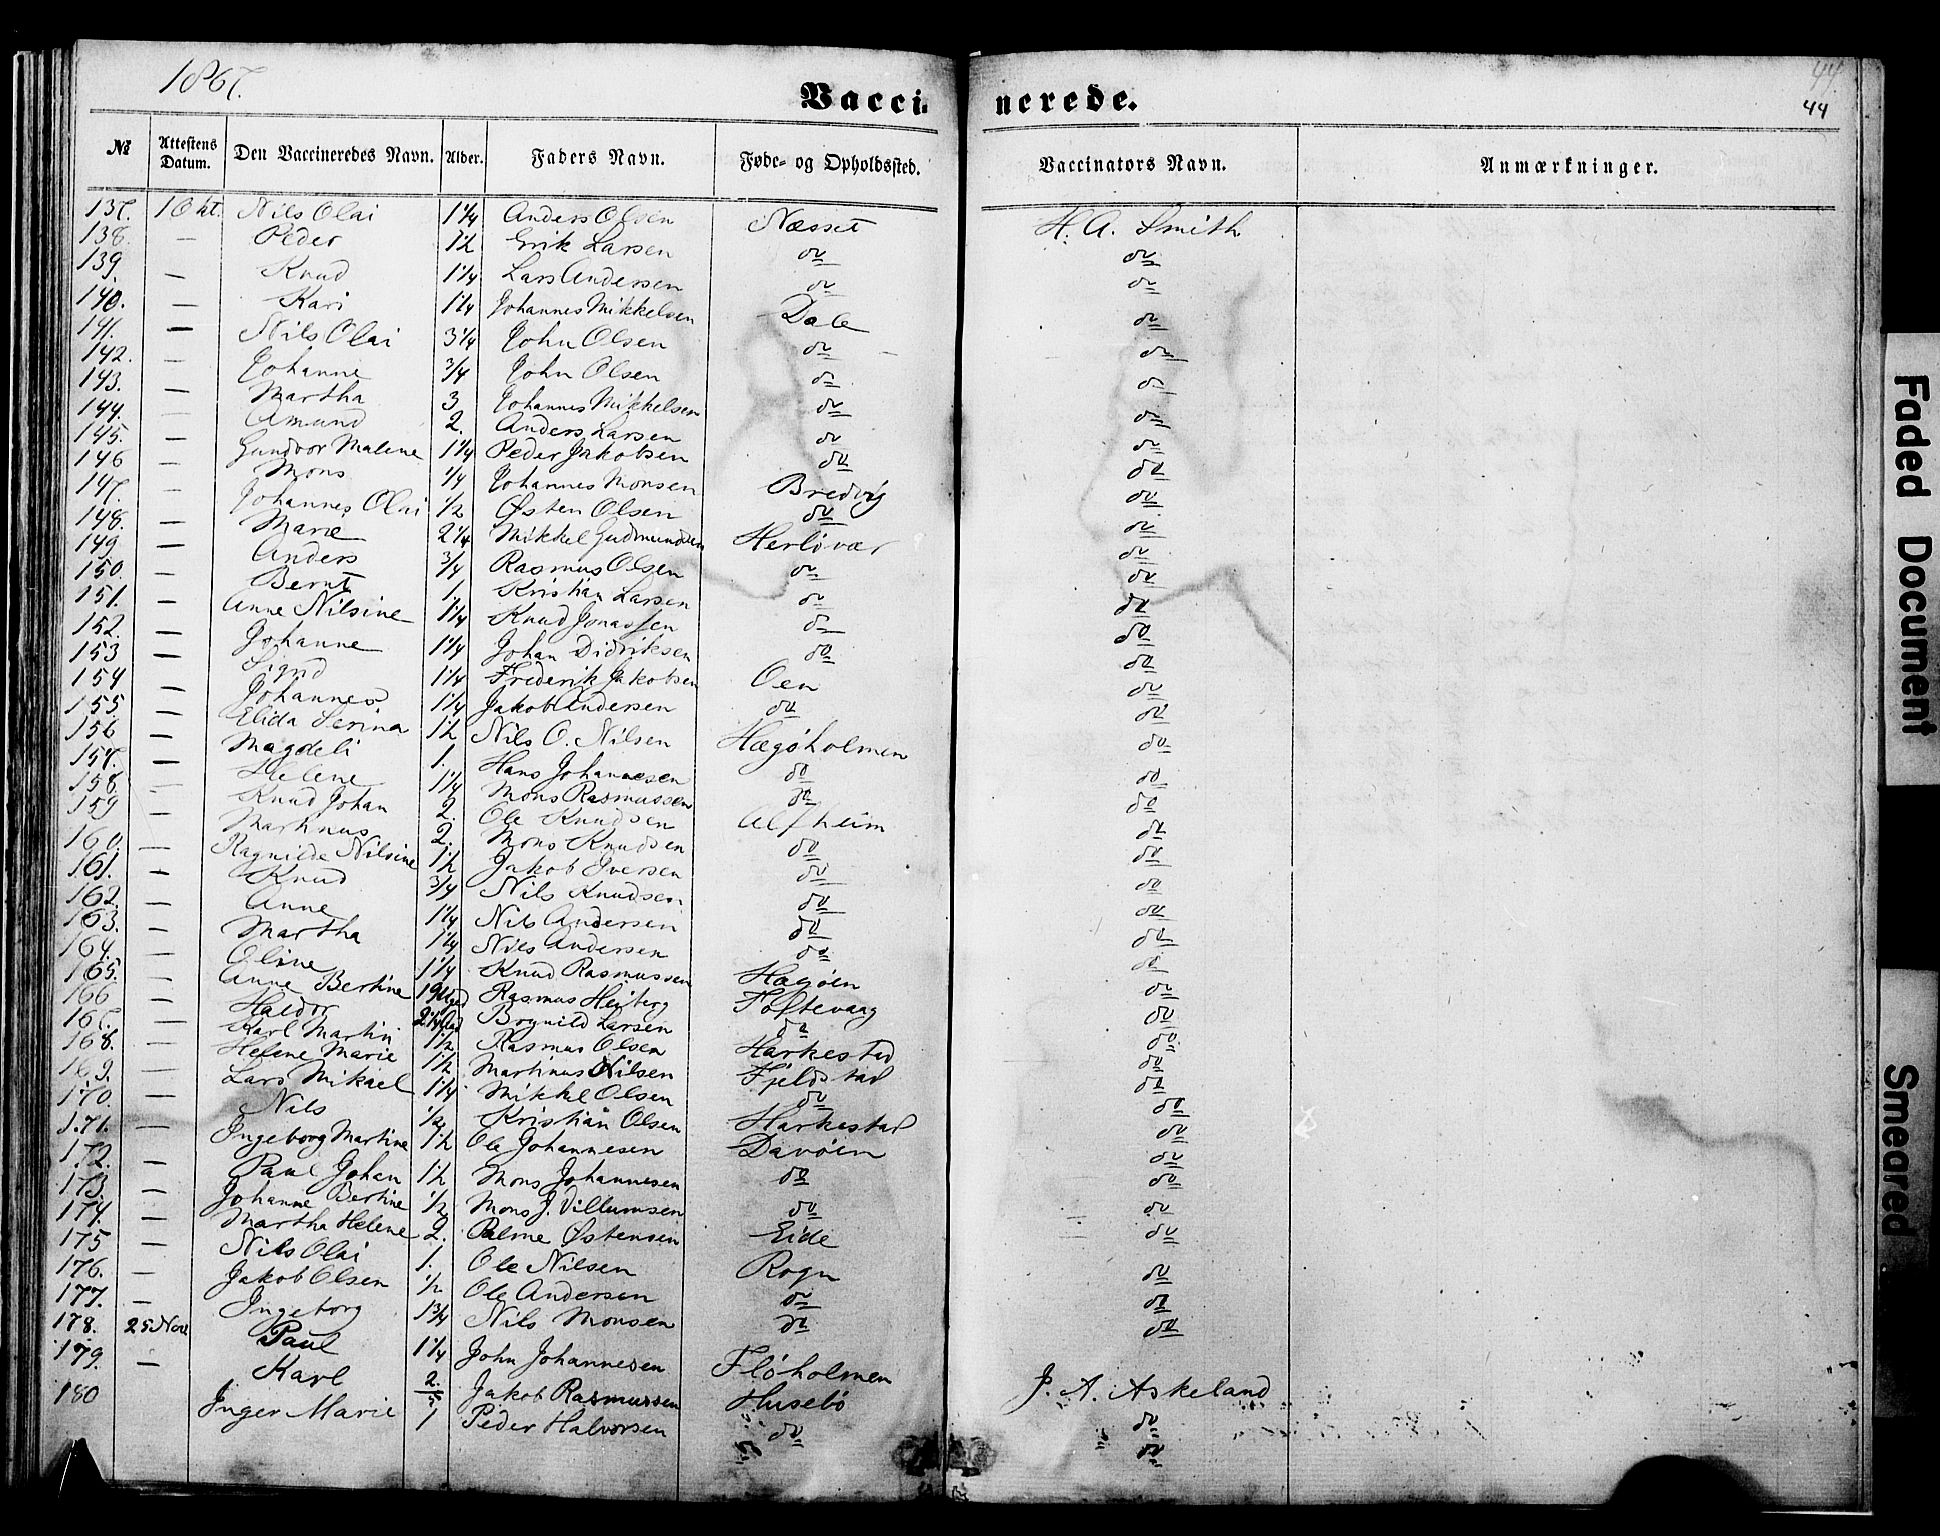 1867.
44
44
Vaccinerede.
№ Attestens Datum. Den Vaccineredes Navn. Alder. Faders Navn. Føde- og Opholdssted. Vaccinators Navn. Anmærkninger.
137. 1 Okt. Nils Olai 1 1/4 Anders Olsen Næsset H. A. Smith
138. — Peder 1 1/2 Erik Larsen do do
139. — Knud 1 1/4 Lars Andersen do do
140. — Kari 1 1/4 Johannes Mikkelsen Dale do
141. — Nils Olai 3 1/4 John Olsen do do
142. — Johanne 3/4 John Olsen do do
143. — Martha 3 Johannes Mikkelsen do do
144. — Amund 2. Anders Larsen do do
145. — Gundvor Malene 1 1/4 Peder Jakobsen do do
146 — Mons 1/4 Johannes Monsen Bredvig do
147. — Johannes Olai 1/2 Østen Olsen do do
148. — Marie 2 1/4 Mikkel Gudmundsen Herløvær do
149 — Anders 3/4 Rasmus Olsen do do
150. — Bernt 1. Kristian Larsen do do
151. — Anne Nilsine 1 1/4 Knud Jonassen do do
152. — Johanne 1 1/4 Johan Didriksen do do
153 — Sigrid 1 1/4 Frederik Jakobsen Oen do
154 — Johannes 1 1/4 Jakob Andersen do do
155. — Elida Serina 1 1/2 Nils O. Nilsen Hægøholmen do
156 — Magdeli 1. Hans Johannesen do do
157. — Helene 1 1/4 Mons Rasmussen do do
158. — Knud Johan 2. Ole Knudsen Alfheim do
159 — Martinus 2. Mons Knudsen do do
160. — Ragnilde Nilsine 1 1/2 Jakob Iversen do do
161. — Knud 3/4 Nils Knudsen do do
162. — Anne 1 1/4 Nils Andersen do do
163. — Martha 1 1/4 Nils Andersen do do
164. — Oline 1 1/4 Knud Rasmussen Hægøen do
165. — Anne Bertine 19 Uger Rasmus Heiberg Toftevaag do
166 — Haldor Brynild Larsen do do
167. — Karl Martin 1 1/2 Rasmus Olsen Harkestad do
168. — Helene Marie 1 1/2 Martinus Nilsen Fjeldstad do
169. — Lars Mikael 1 1/4 Mikkel Olsen do do
170. — Nils 1/2 Kristian Olsen Harkestad do
171. — Ingeborg Martine 1 1/2 Ole Johannesen Davøen do
172. — Paul Johan 1 1/2 Mons Johannesen do do
173. — Johanne Bertine 1/2 Mons J. Villumsen do do
174. — Martha Helene 2. Palme Østensen Eide do
175 — Nils Olai 1. Ole Nilsen Rogn do
176. — Jakob Olsen 1/2 Ole Andersen do do
177. — Ingeborg 1 3/4 Nils Monsen do do
178. 25 Nov Paul 1 1/4 John Johannesen Fløholmen J. A. Askeland
179. — Karl 2. Jakob Rasmussen Husebö do
180 Inger Marie 1 Peder Halvorsen do do
Faded Document
Smeared